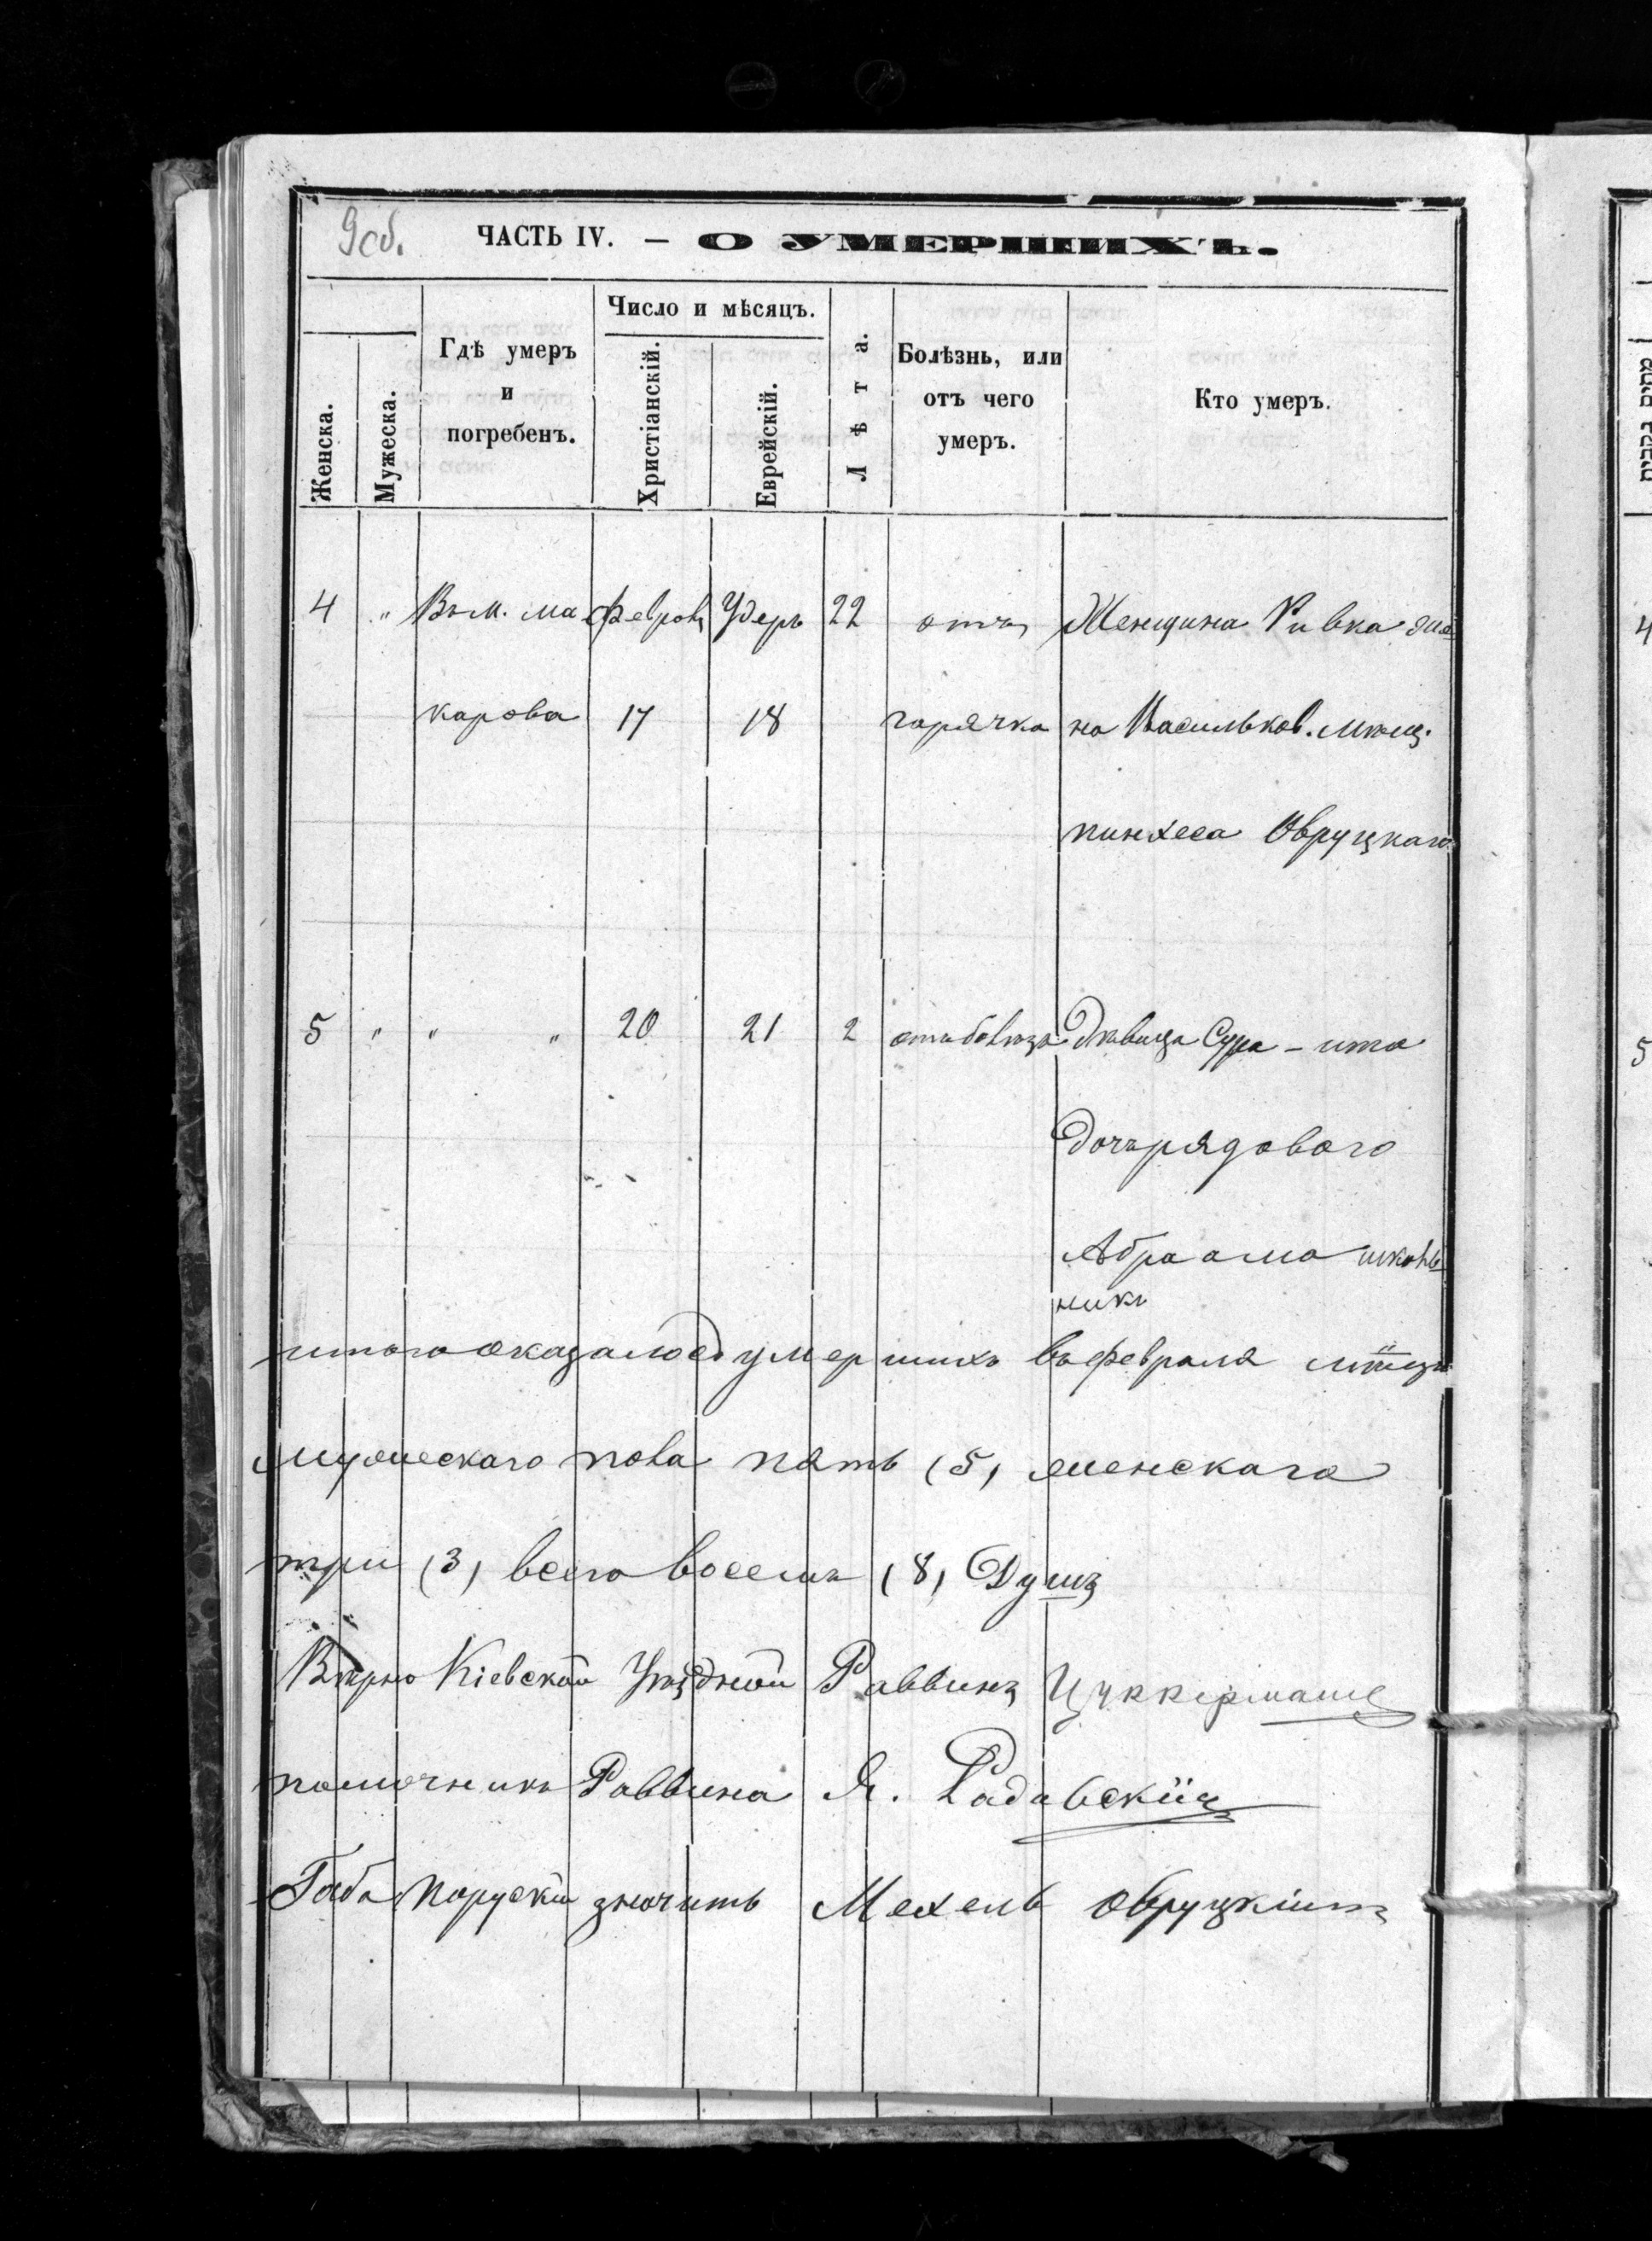 9об.
ЧАСТЬ IV. — О УМЕРШИХЪ.
Женска.
Мужеска.
Гдѣ умеръ
и
погребенъ.
Число и мѣсяцъ.
Христіанскій.
Еврейскій.
Лѣта.
Болѣзнь, или
отъ чего
умеръ.
Кто умеръ.
4 " Въ м. Ма Феврал Удеръ 22 отъ Женщина Ривка же
карова 17 18 горячка на Васильков. мѣщ.
Пинхеса Овруцкаго
5 " " " 20 21 2 Дѣвица Сура - ита
дочь рядового
Абраама школь
никъ
итого оказалось умершихъ въ февраля мѣсяцѣ
мужескаго пола пять (5) женскаго
три (3) всего восемь (8) Душъ
Вѣрно Кіевской Уѣздной Раввинъ Цуккерманъ
помочникъ Раввина Я. Радавскій
Габа поруски значить Мехель Овруцкій
4
5